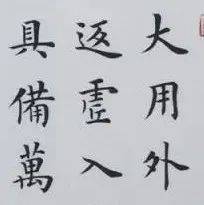 大用外
返虛入
具備萬